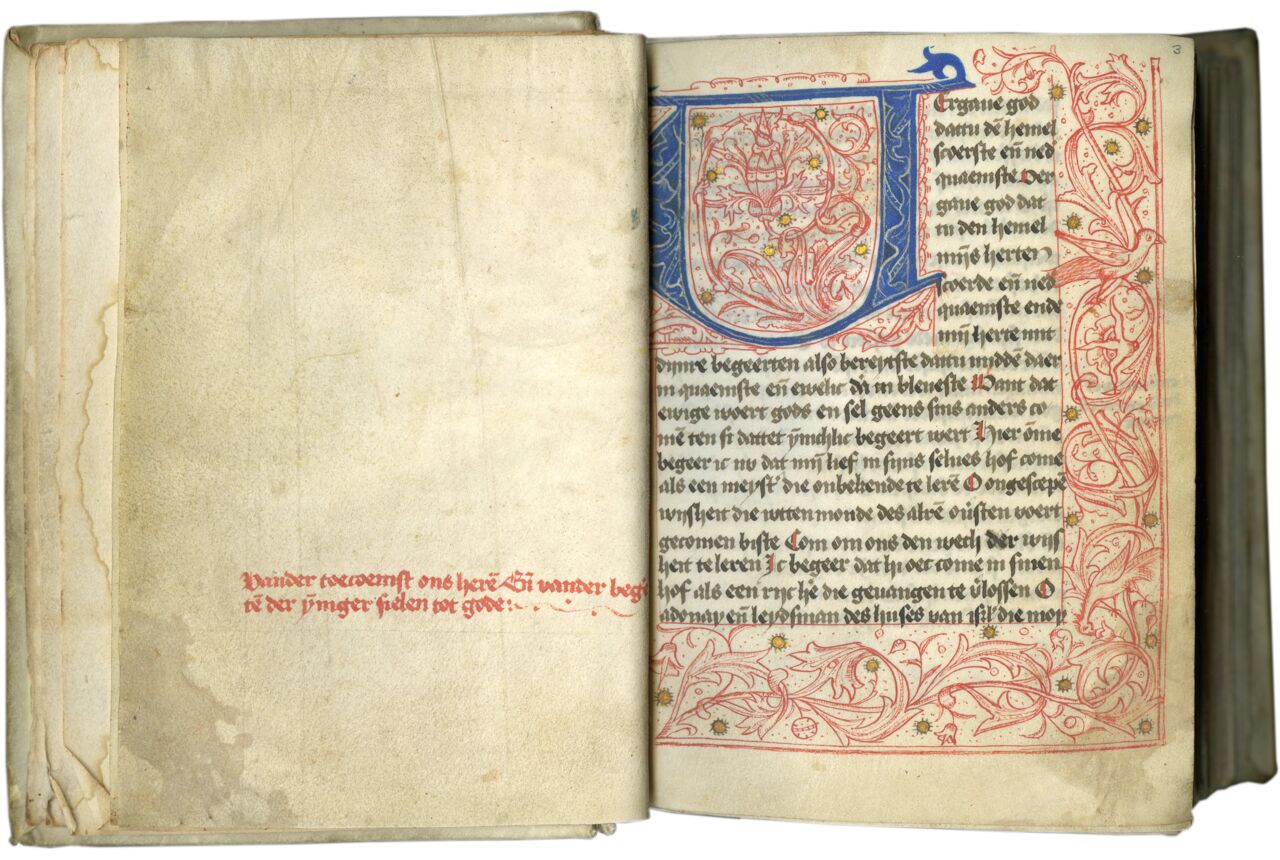 Vander toecoemst ons herē En̄ vander beg
tē der ȳniger sielen tot gode:
3
Vergaue god
dattu dē hemel
scoerste en̄ ned
quaemste Ver
gaue god dat
tu den hemel
mijs herten
scoerde en̄ ned
quaemste ende
mij̄ herte mit
dijnre begeerten also bereytste dattu midde daer
in quaemste en̄ ewelic dair in bleueste Want dat
ewige woert gods en sel geens sins anders co
mē ten si dattet ȳnichlic begeert wert Hier ōme
begeer ic nv dat mij̄ lief in sijns selues hof come
als een meyster die onbekende te lerē O ongescepē
wijsheit die wtten monde des alrē ouersten voert
gecomen biste Com om ons den wech der wijs
heit te leren Ic begeer dat hi oec come in sinen
hof als een rijc hē die geuangen te verlossen O
adonay en̄ leydsman des huses van isrl die moy